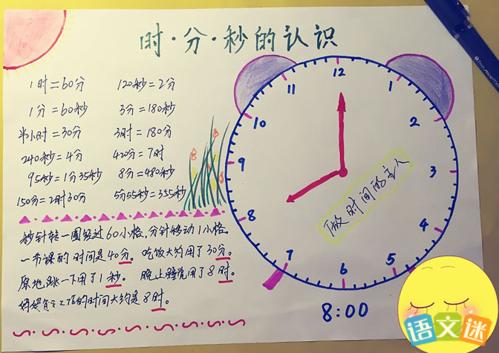 时·分·秒的认识
1时=60分 120秒=2分
1分=60秒 3分=180秒
半小时=30分 3时=180分
240秒=4分 420分=7时
95秒=1分35秒 8分=480秒
150分=2时30分 5分55秒=355秒
秒针转一圈经过60小格,分针转动1小格。
一节课的时间是40分。吃饭大约用了30分。
原地跳一下用了1秒。晚上睡觉用了8时。
工作的时间大约是8时。
12
1
2
3
4
5
6
7
8
9
10
11
做时间的主人
8:00
语文迷